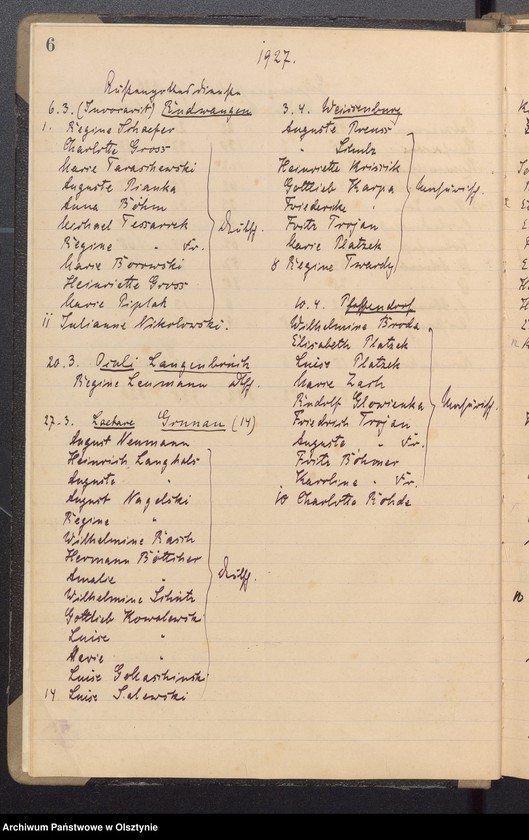 6
1927.
Außengottesdiensten
6.3. (Invocavit) Rudwangen
1. Regine Schaefer
Charlotte Gross
Marie Taraschewski
Auguste Pianka
Anna Böhm
Michael Tessarek
Regine " Fr.
Marie Borowski
Heinriette Gross
Marie Piplak
11 Julianne Nikolowski.
Deutsch.
20.3. Oculi Langenbrück
Regine Leumann Dtsch.
27.3. Laetare Grunau (14)
August Neumann
Heinrich Langhals
Auguste "
August Nagelski
Regine "
Wilhelmine Rasch
Hermann Böttcher
Amalie "
Wilhelmine Schutz
Gottlieb Kowalewski
Luise "
Marie "
Luise
14 Luise Salewski
Deutsch.
3.4. Weissenburg
Auguste Preuss
"
Heinriette
Gottlieb Karpa
Friedericke "
Fritz Trojan
Marie Platzek
8 Regine Twardy
Masurisch.
10.4. Pfaffendorf
Wilhelmine Broda
Elisabeth Platzek
Luise Platzek
Marie
Rudolf Glowienka
Friedrich Trojan
Auguste " Fr.
Fritz Böhmer
Karoline " Fr.
10 Charlotte Rohde
Masurisch.
Archiwum Państwowe w Olsztynie